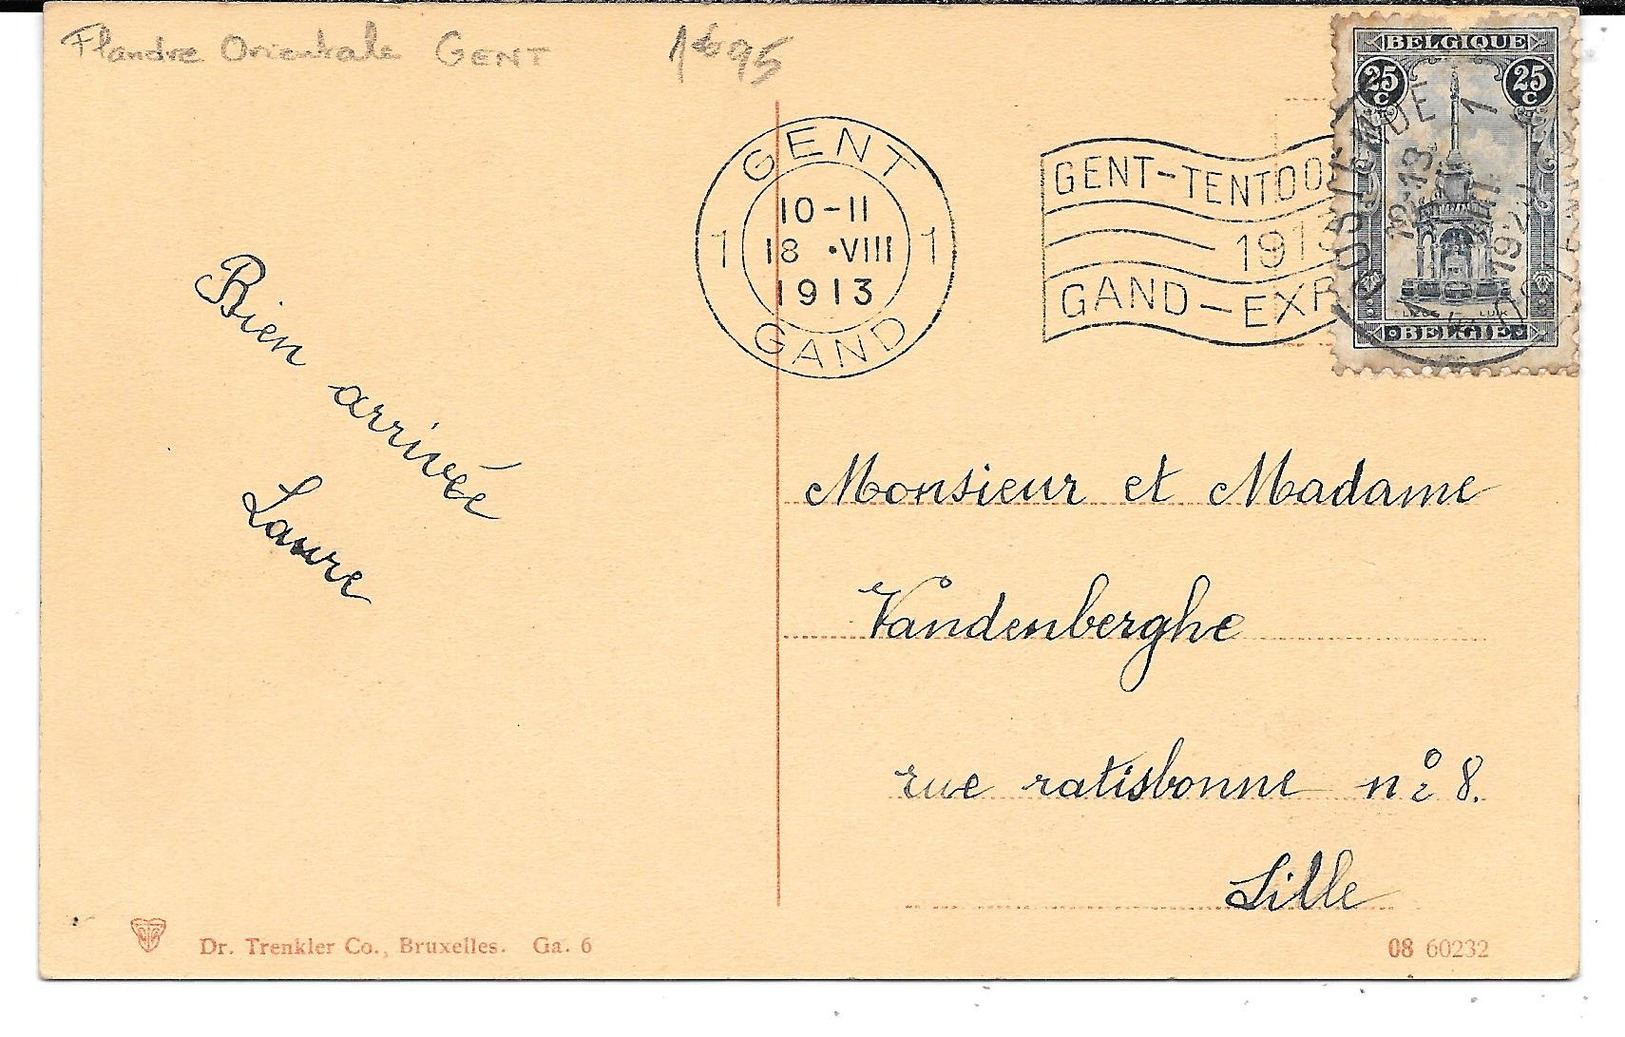 Flandre Orientale GENT 1€95
GENT
10-11
1 18 •VIII 1
1913
GAND
GENT-TENTOO
1913
GAND-EXP
BELGIQUE
25 C 25 C
LUIK
BELGIË
OOSTENDE 1
12-13
192
Bien arrivée
Laure
Monsieur et Madame
Vandenberghe
rue ratisbonne nº 8.
Lille
Dr. Trenkler Co., Bruxelles. Ga. 6
08 60232